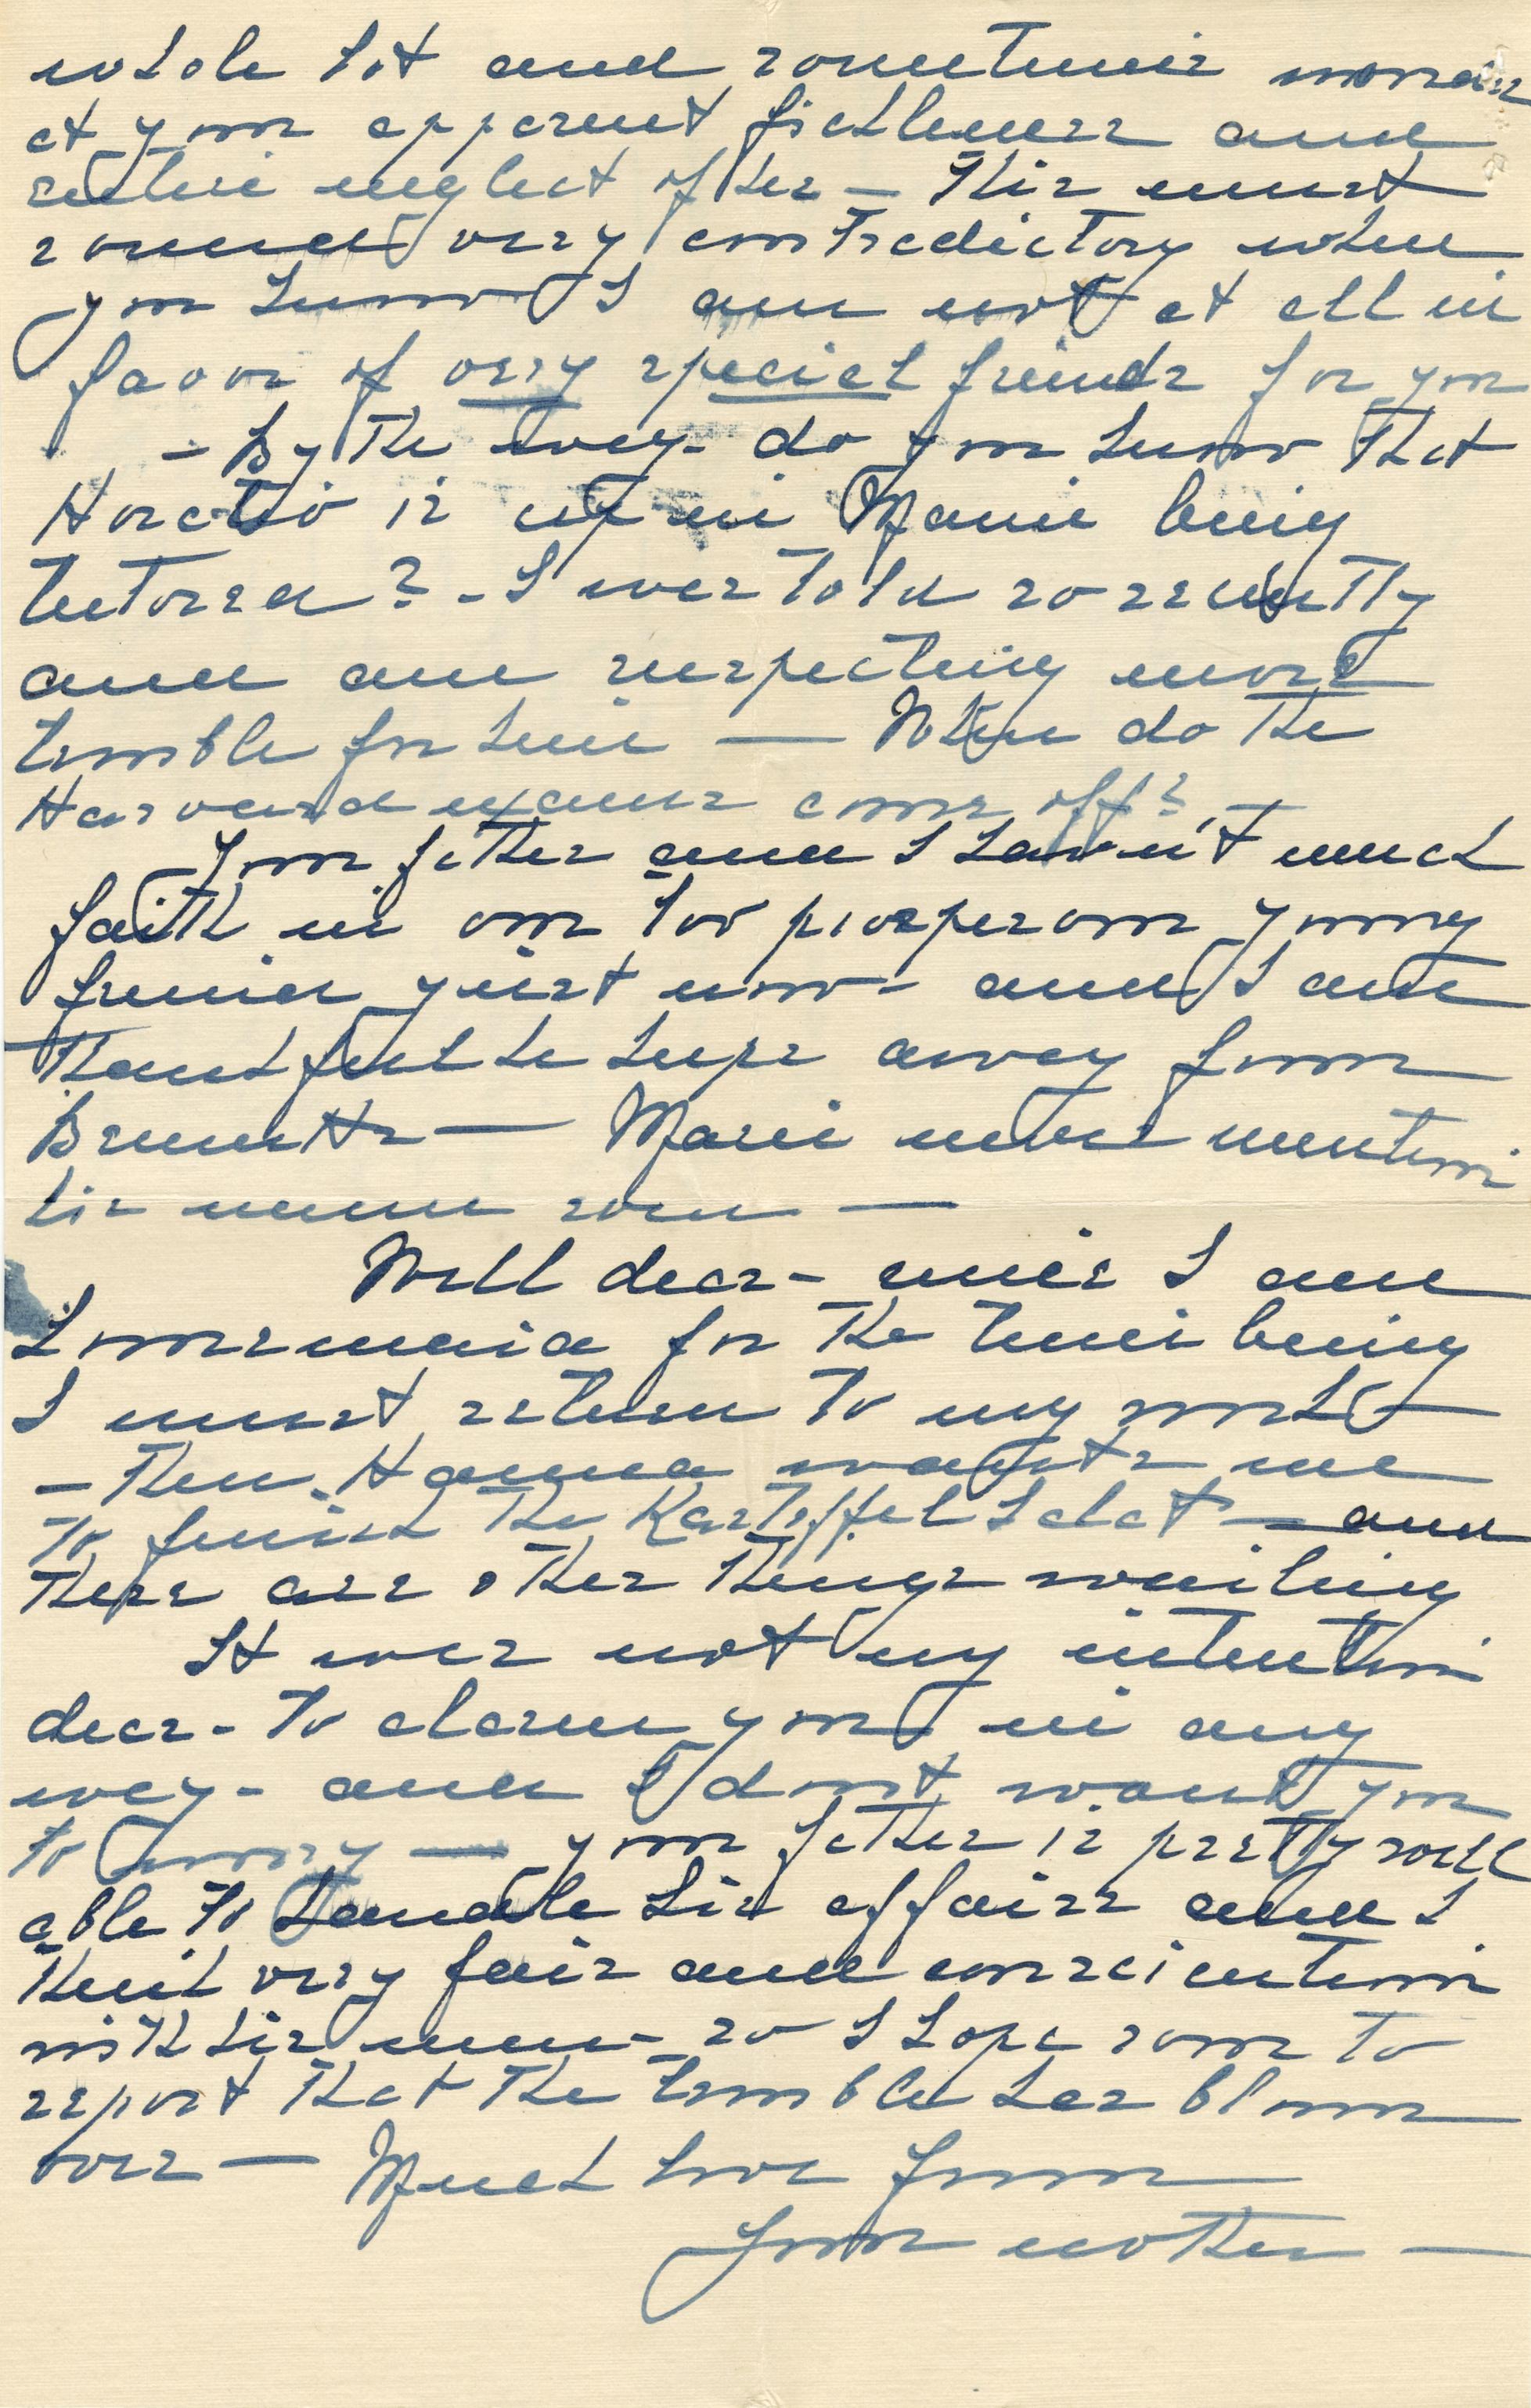 whole lot and sometimes wonder
at your apparent fickleness and
entire neglect of her — This must
sound very contradictory when
you know I am not at all in
favor of very special friends for you
— By the way - do you know that
Horatio is up in Maine being
tutored? - I was told so recently
and am suspecting more
trouble for him — When do the
Harvard exams come off? —
Your father and I haven't much
faith in our too prosperous young
friend just now - and I am
thankful he keeps away from
— Marie never mentions
his name even —
Well dear - since I am
housemaid for the time being
I must return to my work —
- Then Hanna wants me
to finish the Kartoffel Salat — and
there are other things waiting
It was not my intention
dear - to alarm you in any
way - and I don't want you
to worry — your father is pretty well
able to handle his affairs and I
think very fair and conscientious
with his men - so I hope soon to
report that the trouble has blown
over — Much love from
Your mother —